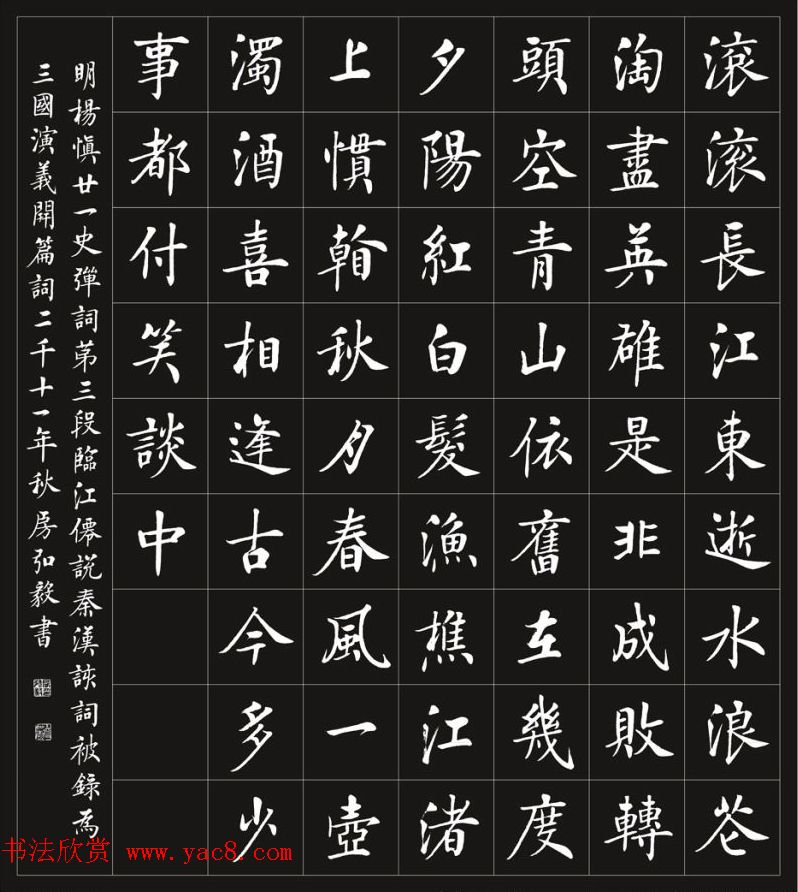 滚滚長江東逝水浪花
淘盡英雄是非成敗轉
頭空青山依舊在幾度
夕陽紅白髮漁樵江渚
上慣看秋月春風一壺
濁酒喜相逢古今多少
事都付笑談中
明楊慎廿一史彈詞第三段臨江僊說秦漢該詞被錄為
三國演義開篇詞二千十一年秋房弘毅書
书法欣赏 www.yac8.com